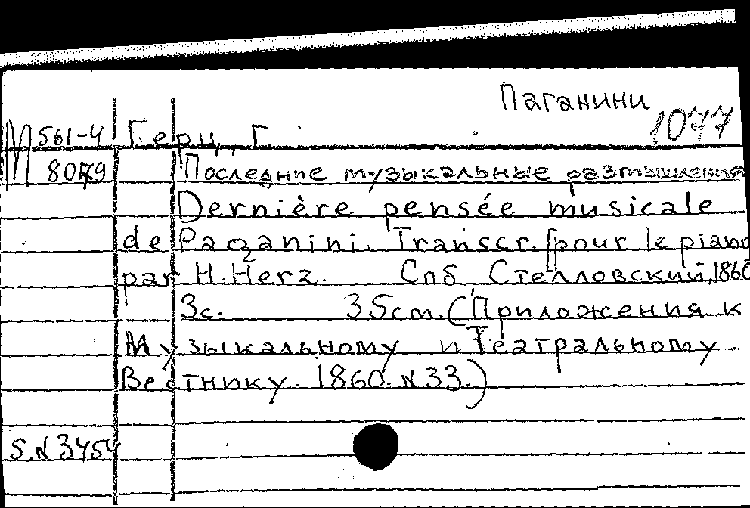 Паганини
1077
М 561-4 Герц, Г.
8079 Последние музыкальные размышления
Dernière pensée musicale
de Paganini. Transcr. pour le piano
par H. Herz. Спб, Стелловский, 1860
3с. 35см. (Приложения к
Музыкальному и Театральному
Вестнику. 1860. N 33.)
S. N 3454